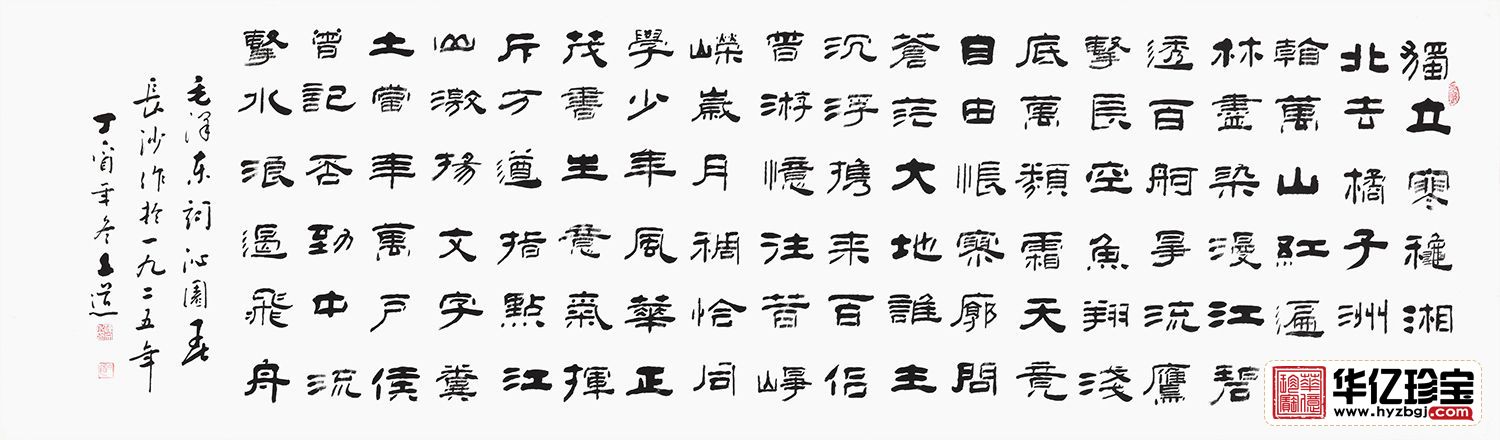 獨立寒穐湘
北去橘子洲
看萬山紅遍
林盡染漫江碧
透百舸爭流鷹
擊長空魚翔淺
底萬類霜天竟
自由悵寥廓問
蒼茫大地誰主
沉浮携来百侣
曾游憶往昔崢
嶸歲月稠恰同
學少年風華正
茂書生意氣揮
斥方遒指點江
山激揚文字糞
土當年萬户侯
曾記否到中流
擊水浪遏飛舟
毛澤东詞沁園春
長沙作於一九二五年
丁酉年冬
华亿珍宝
www.hyzbgj.com